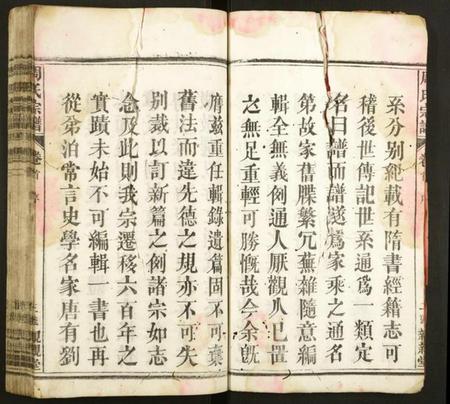 系分别紀載有隋書經籍志可
稽後世傳記世系通爲一類定
名曰譜而譜遂爲家乘之通名
第故家舊牒繁冗蕪雜隨意編
輯全無義例通人厭觀人已置
之無足重輕可勝慨哉今余旣
膺玆重任輯錄遺篇固不可棄
舊法而違先德之規亦不可失
別裁以訂新篇之例諸宗如志
念及此則我宗遷移六百年之
實蹟未始不可編輯一書也再
從弟泊常言史學名家唐有劉
周氏宗譜
卷首
序